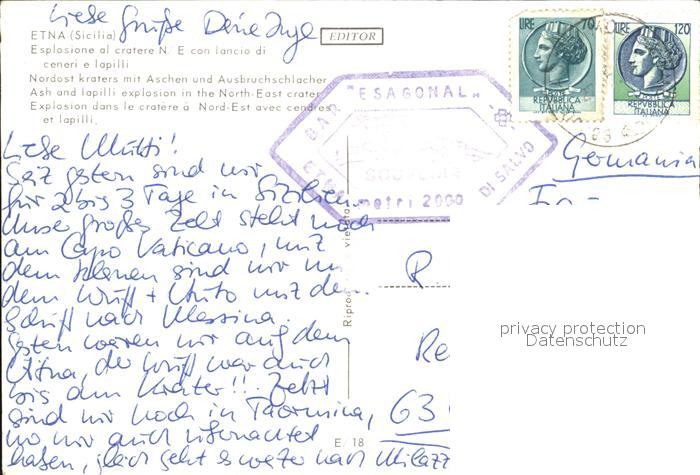 Liebe Grüße Deine Inge
ETNA (Sicilia)
EDITOR
Esplosione al cratere N. E con lancio di
ceneri e lapilli
Nordost kraters mit Aschen und Ausbruchschlacher
Ash and lapilli explosion in the North-East crater
Explosion dans le cratère à Nord-Est avec cendres
et lapilli,
LIRE 70
REPVBBLICA
ITALIANA
LIRE 120
REPVBBLICA
ITALIANA
BAR "ESAGONAL" DI SALVO
SOUVENIR
ETNA metri 2000
Germania
Liebe Mutti!
Seit gestern sind wir
für 2 bis 3 Tage in Sizilien.
Unser großes Zelt steht noch
am Capo Vaticano, mit
dem kleinen sind wir in
dem + Auto mit dem
Schiff nach Messina.
Gestern waren wir auf dem
Ätna, der war auch
bis am Krater!! Jetzt
sind wir noch in Taormina,
wo wir auch übernachtet
haben, gleich geht es weiter nach Milazz
R.
Re
63
Riprod. vietata
E. 18
privacy protection
Datenschutz